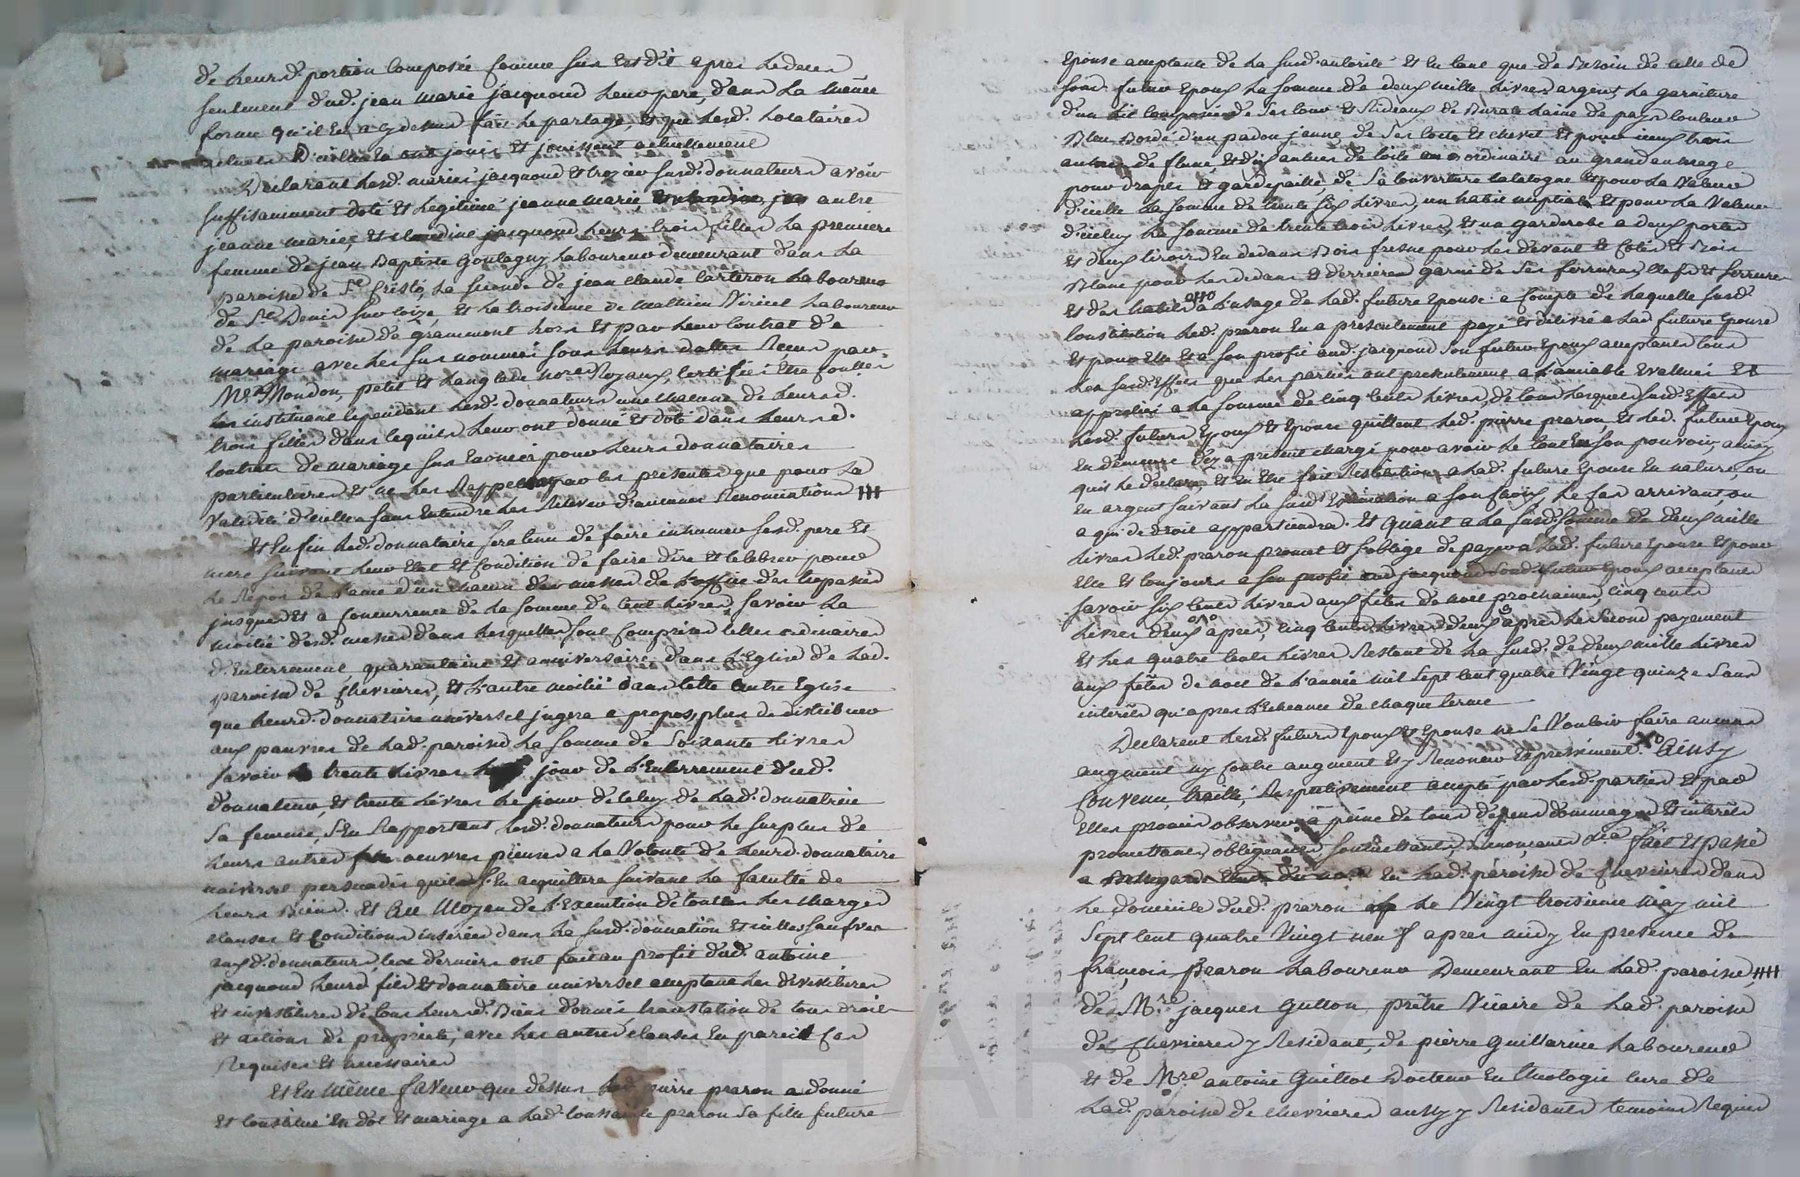 de leursd. portion composée comme sus est dit apres le deces
seulement dud. jean marie jacquond leur pere, dans la même
forme qu'il en a cy dessus fait le partage, et que lesd. locataires
en ont jouis et jouissent actuellement
Declarent lesd. mariés jacquond et susd. donnateurs avoir
suffisamment doté et legitimé jeanne marie autre
jeanne marie, et claudine jacquond leurs trois filles la premiere
femme de jean Baptiste Goulagny laboureur demeurant dans la
paroisse de St Cristô, la seconde de jean claude Carteron laboureur
de St Denis sur coize, et la troisieme de Mathieu Viricel laboureur
de la paroisse de grammont hors et par leur contrat de
mariage avec les sus nommés sous leurs dattes Reçus par
Mes Mondon, petit et Langlade nores Royaux,
les instituant cependant lesd. donnateurs une chacune de leursd.
trois filles dans ce qu'ils leur ont donné et doté dans leursd.
contrats de mariage sus enoncés pour leurs donnataires
particulieres et ne les Rappellent par les presentes que pour la
validité d'icelles sans entendre les Relever d'aucunes Renonciations
Et enfin led. donnataire sera tenu de faire inhumer sesd. pere et
mere suivant leur etat et condition de faire dire et celebrer pour
le Repos de l'ame d'un chacun des messes de l'office des trepassés
jusques et a concurrence de la somme de cent livres, savoir la
moitié desd. messes dans lesquelles sont comprises celles ordinaires
d'enterrement, quarantaine et anniversaire dans l'Eglise de lad.
paroisse de chevrieres, et l'autre moitié dans telle autre Eglise
que leurd. donnataire universel jugera a propos, plus de distribuer
aux pauvres de lad. paroisse la somme de soixante livres
savoir trente livres le jour de l'enterrement dud.
donnateur, et trente livres le jour de celuy de lad. donnatrice
sa femme, s'en Rapportant lesd. donnateurs pour le surplus de
leurs autres oeuvres pieuses a la Volonté de leurd. donnataire
universel persuadés qu'il s'en acquittera suivant la faculté de
leurs Biens. Et Au Moyen de l'Execution de toutes les charges
clauses et Conditions inserées dans la susd. donnation
auxd. donnateurs, ces derniers ont fait au profit dud. antoine
jacquond leurd. fils et donnataire universel acceptant les devestitures
et investitures de tous leursd. Biens donnés translation de tous droits
et actions de proprieté, avec les autres clauses en pareil cas
Requises et necessaires
Et En même faveur que dessus led. pierre praron a donné
et constitué en dot et mariage a lad. praron sa fille future
Epouse acceptante de la susd. autorité et en tant que de Besoin de celle de
sond. futur epoux la somme de deux mille livres argent, la garniture
d'un lit composée de ses tour et Rideaux de Burate laine de pays couleur
Bleu Bordé d'un padou jaune de ses coete et chevet et pour iceux trois
aunes de fleure, et dix aunes de toile ordinaire au grand aunage
pour draps et gardepaille, de sa couverture catalogne et pour la Valeur
d'icelle la somme de trente six livres, un habit nuptial et pour la Valeur
d'iceluy la somme de trente trois livres, et un garderobe a deux portes
et deux tiroirs en dedans Bois fresne pour les devant et Côtés et Bois
Blanc pour les dedans et derrieres garni de ses ferrures clefs et serrures
et des habits a l'usage de lad. future epouse a compte de laquelle susd.
constitution led. praron en a presentement payé et delivré a lad. future epouse
et pour elle et a son profit aud. jacquond son futur epoux acceptants tous
les susd. effets que les parties ont presentement a l'amiable evalués et
appreciés a la somme de cinq cents livres, de tous lesquels susd. effets
lesd. futurs epoux et epouse quittent led. pierre praron, et led. futur epoux
en demeure dez a present chargé pour avoir le tout en son pouvoir, ainsy
qu'il le declare, et en etre fait Restitution a lad. future epouse en nature, ou
en argent suivant la susd. estimation a son choix, le cas arrivant ou
a qui de droit appartiendra. Et Quant a la susd. somme de deux mille
livres led. praron promet et s'oblige de payer a lad. future epouse et pour
elle et toujours a son profit aud. jacquond sond. futur epoux acceptant
savoir six cents livres aux fêtes de noel prochaines, cinq cents
livres deux ans apres, cinq cents livres deux ans apres le second payement
et les quatre cents livres Restant de la susd. de deux mille livres
aux fêtes de noel de l'année mil sept cent quatre Vingt quinze sans
interêts qu'apres l'echeance de chaque terme
Declarent lesd. futurs epoux et epouse ne se Vouloir faire aucun
augment ny contre augment et y Renoncer expressement. Ainsy
Convenu, traitté, Respectivement accepté par lesd. parties et par
elles promis observer a peine de tous depens dommages et interêts
promettants obligeants soumettants, Renonçants &ca fait et passé
a en lad. paroisse de chevrieres dans
le domicile dud. praron le Vingt troisieme may mil
sept cent quatre Vingt neuf apres midy en presence de
françois praron laboureur Demeurant en lad. paroisse,
de Mre jacques Gutton prêtre Vicaire de lad. paroisse
de chevrieres y Residant, de pierre Guillarme laboureur
et de Mre antoine Guillot Docteur en theologie curé de
lad. paroisse de chevrieres aussy y Residants temoins Requis